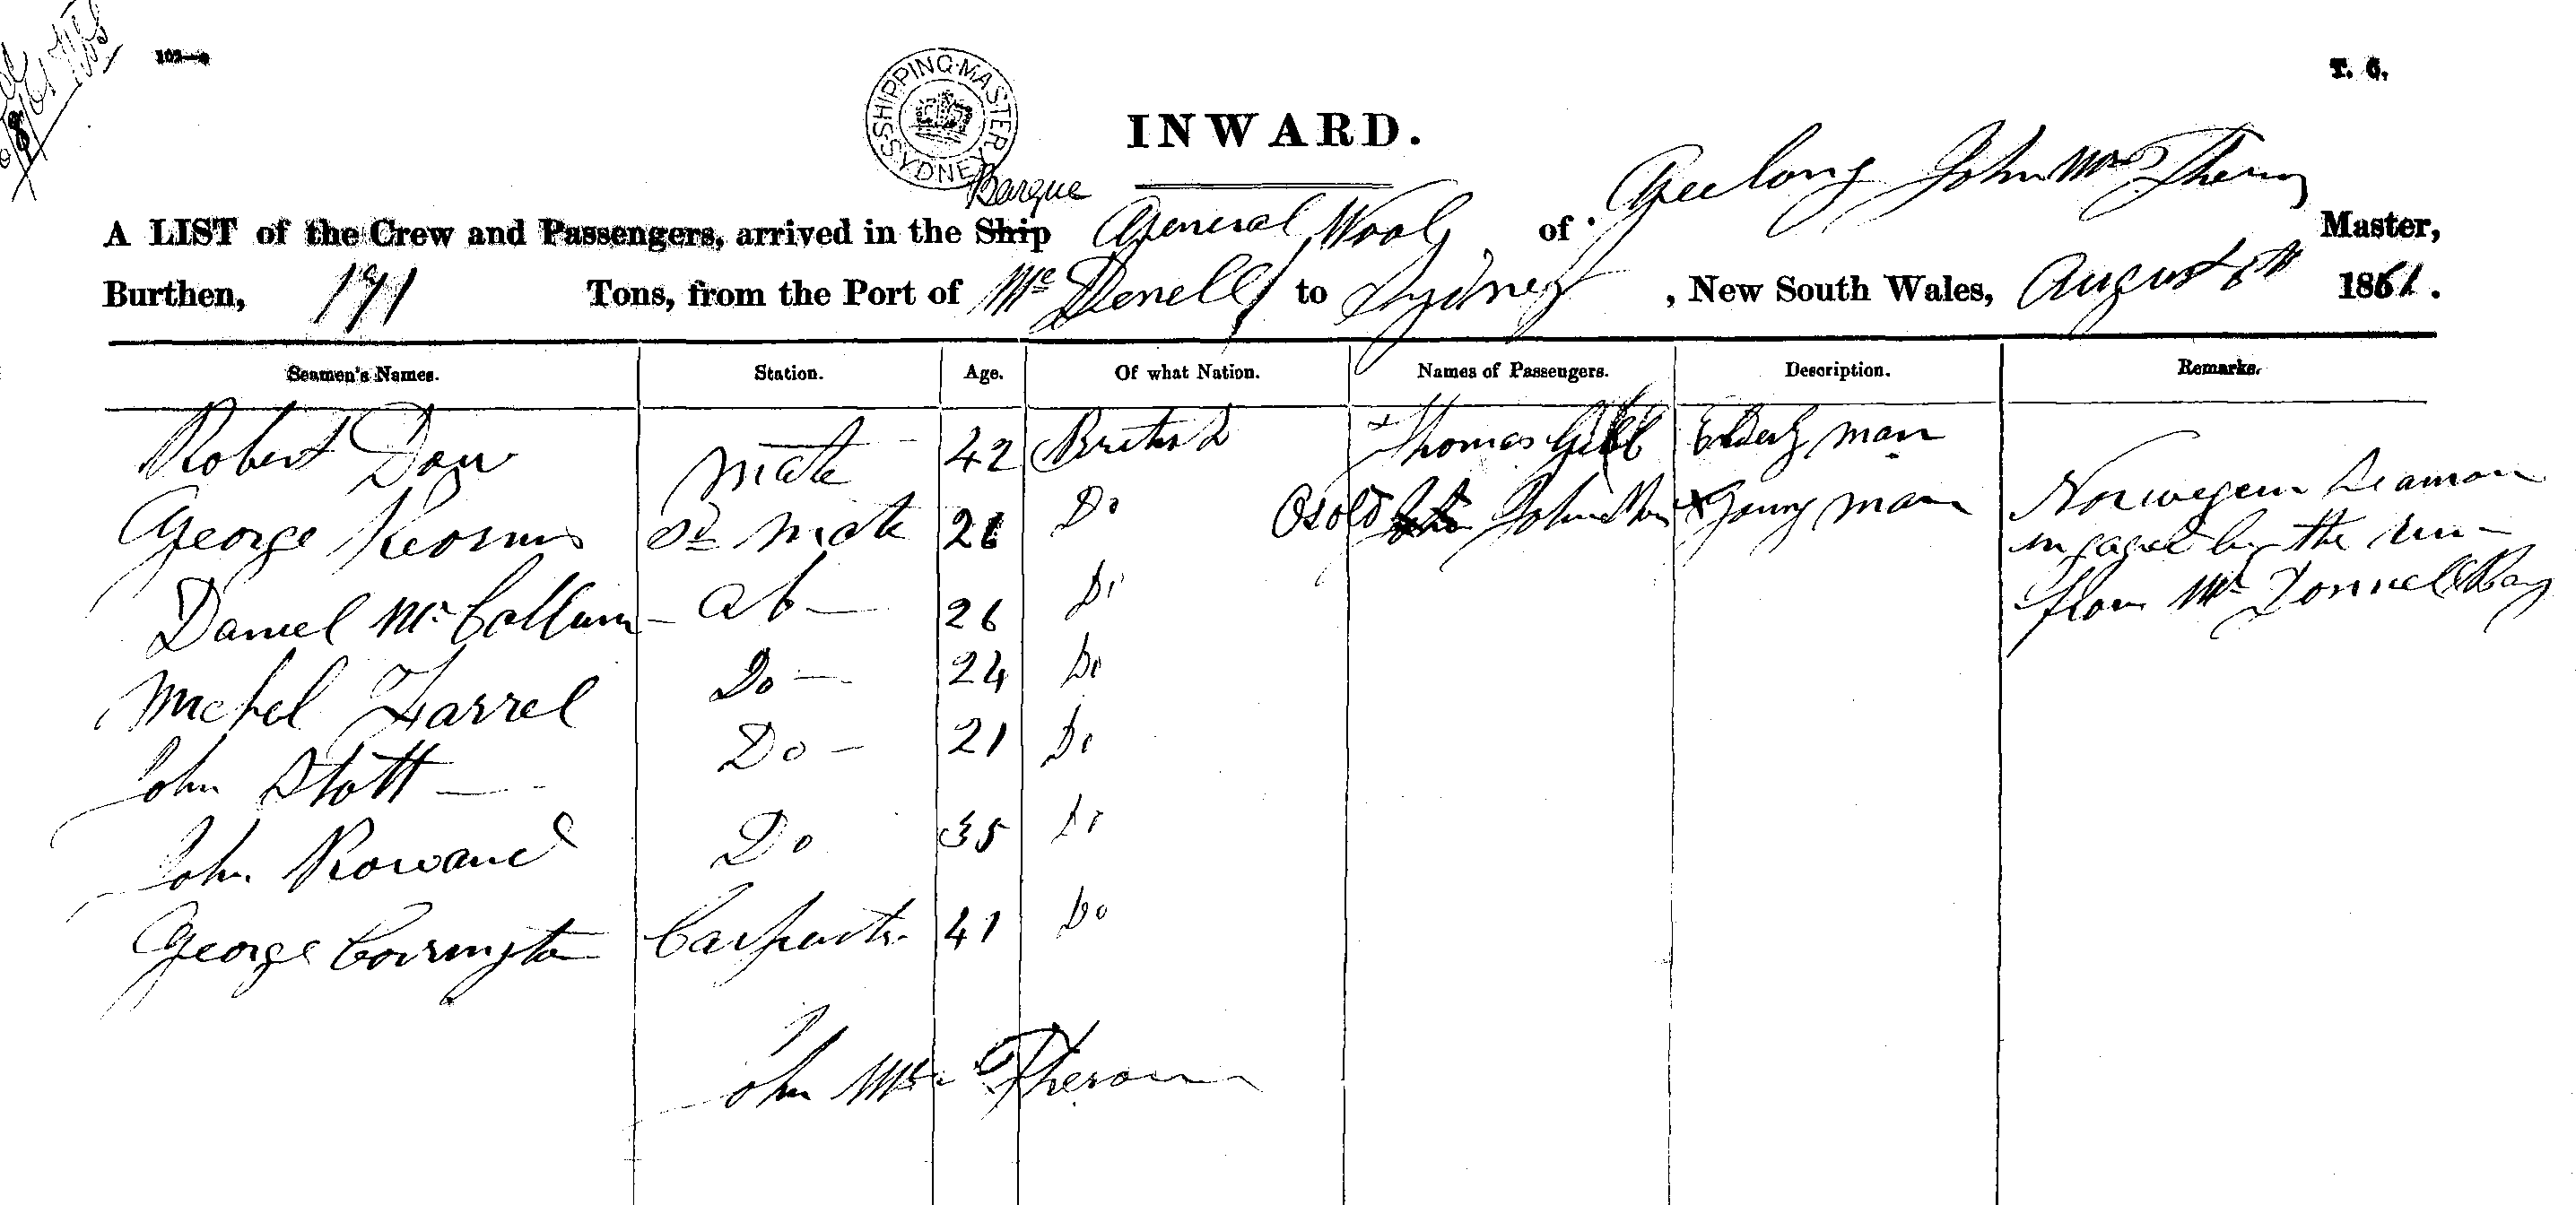 102—
T. C.
SHIPPING MASTER
SYDNEY
INWARD.
Barque
A LIST of the Crew and Passengers, arrived in the Ship General Wool of Geelong John Mc Master,
Burthen, 171 Tons, from the Port of Mc Donell to Sydney, New South Wales, August 8th 1861.
Seamen's Names. Station. Age. Of what Nation. Names of Passengers. Description. Remarks.
Robert Dow Mate 42 British Thomas Gibb Elderly man
George 2d Mate 26 Do John Young man Norwegian Seaman
engaged by the run
Daniel McCallum ab 26 Do from Mc Donnell Bay
Michel Farrel Do 24 Do
John Stott Do 21 Do
John Rowand Do 35 Do
George Corrington Carpenter 41 Do
John Mc